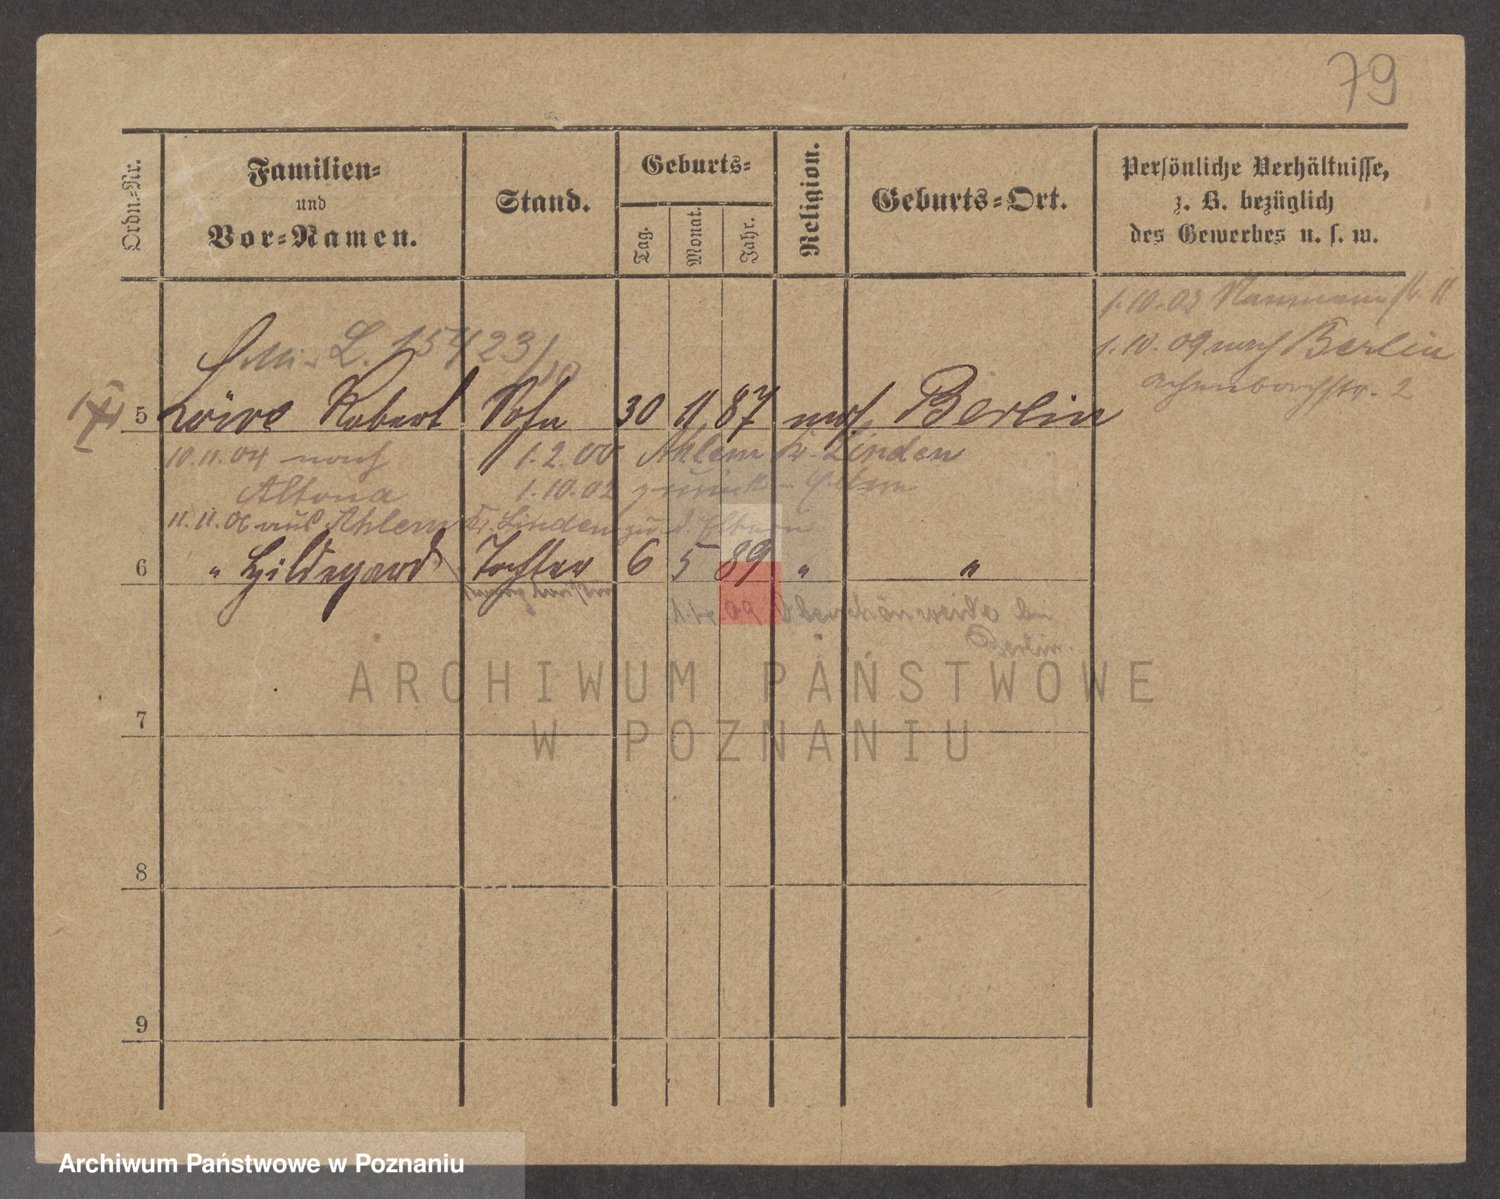 79
Ordn.-Nr.
Familien-
und
Vor-Namen.
Stand.
Geburts-
Tag.
Monat.
Jahr.
Religion.
Geburts-Ort.
Persönliche Verhältnisse,
z. B. bezüglich
des Gewerbes u. s. w.
1.10.02
1.10.09 nach Berlin
Achenbachstr. 2
L. 15423/
5 Robert Sohn 30 11 87 mos. Berlin
10.11.04 nach 1.2.00 Ahlem Kr. Linden
Altona 1.10.02 zurück
11.11.06 aus Ahlem Kr. Linden zu d. Eltern
6 " Hildegard Tochter 6 5 89 " "
09 Oberschönweide bei
Berlin.
ARCHIWUM PAŃSTWOWE
W POZNANIU
7
8
9
Archiwum Państwowe w Poznaniu